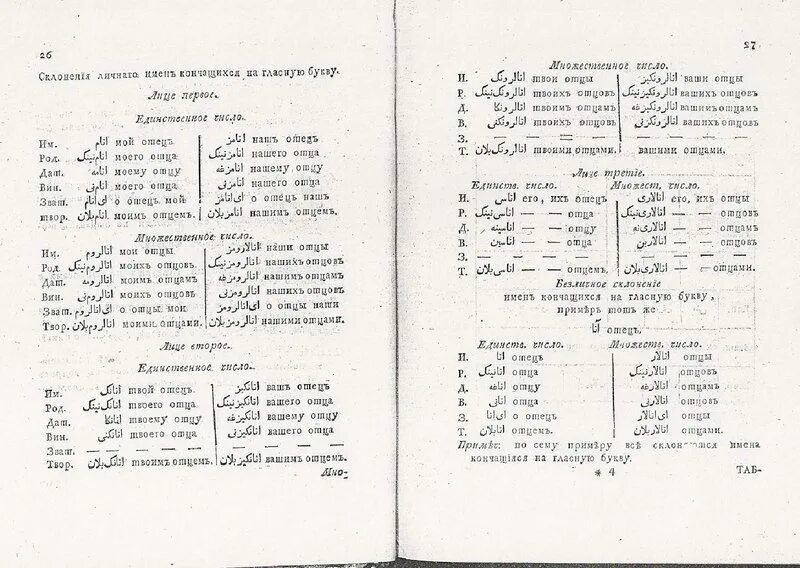 26
Склоненія личнаго именъ кончащихся на гласную букву.
Лице первое.
Единственное число.
Им. اتام мой отецъ اتامز нашъ отецъ
Род. اتامنينک моего отца اتامزنينک нашего отца
Дат. اتامه моему отцу اتامزغه нашему отцу
Вин. اتامنی моего отца اتامزنی нашего отца
Зват. ای اتام о отецъ мой ای اتامز о отецъ нашъ
Твор. اتام بلان моимъ отцемъ. اتامز بلان нашимъ отцемъ.
Множественное число.
Им. اتالروم мои отцы اتالرومز наши отцы
Род. اتالروم نينک моихъ отцовъ اتالرومزنينک нашихъ отцовъ
Дат. اتالرومه моимъ отцамъ اتالرومزغه нашимъ отцамъ
Вин. اتالرومنی моихъ отцовъ اتالرومزنی нашихъ отцовъ
Зват. ای اتالروم о отцы мои ای اتالرومز о отцы наши
Твор. اتالروم بلان моими отцами. اتالرومز بلان нашими отцами.
Лице второе.
Единственное число.
Им. اتانک твой отецъ اتانکيز вашъ отецъ
Род. اتانک نينک твоего отца اتانکيزنينک вашего отца
Дат. اتانکا твоему отцу اتانکيزغه вашему отцу
Вин. اتانکنی твоего отца اتانکيزنی вашего отца
Зват. — — — — — — — —
Твор. اتانک بلان твоимъ отцемъ. اتانکيز بلان вашимъ отцемъ.
Мно-
27
Множественное число.
И. اتالرونک твои отцы اتالرونکيز ваши отцы
Р. اتالرونک نينک твоихъ отцовъ اتالرونکيزنينک вашихъ отцовъ
Д. اتالرونکا твоимъ отцамъ اتالرونکيزغه вашимъ отцамъ
В. اتالرونکنی твоихъ отцовъ اتالرونکزنی вашихъ отцовъ
З. — — — — — — — —
Т. اتالرونک بلان твоими отцами. вашими отцами.
Лице третіе.
Единств. число. Множест. число.
И. اتاسی его, ихъ отецъ اتالاری его, ихъ отцы
Р. اتاسی نينک — — отца اتالاری نينک — — отцовъ
Д. اتاسينه — — отцу اتالارينه — — отцамъ
В. اتاسين — — отца اتالارين — — отцовъ
З. — — — — — — — —
Т. اتاسی بلان — — отцемъ. اتالاری بلان — — отцами.
Безличное склоненіе
именъ кончащихся на гласную букву,
примѣръ тотъ же
اتا отецъ.
Единств. число. Множеств. число.
И. اتا отецъ اتالار отцы
Р. اتانينک отца اتالارنينک отцовъ
Д. اتاغه отцу اتالارغه отцамъ
В. اتانی отца اتالارنی отцовъ
З. ای اتا о отецъ ای اتالار отцы
Т. اتا بلان отцемъ. اتالار بلان отцами.
Примѣч: по сему примѣру всѣ склоняются имена
кончащіяся на гласную букву.
* 4 ТАБ-